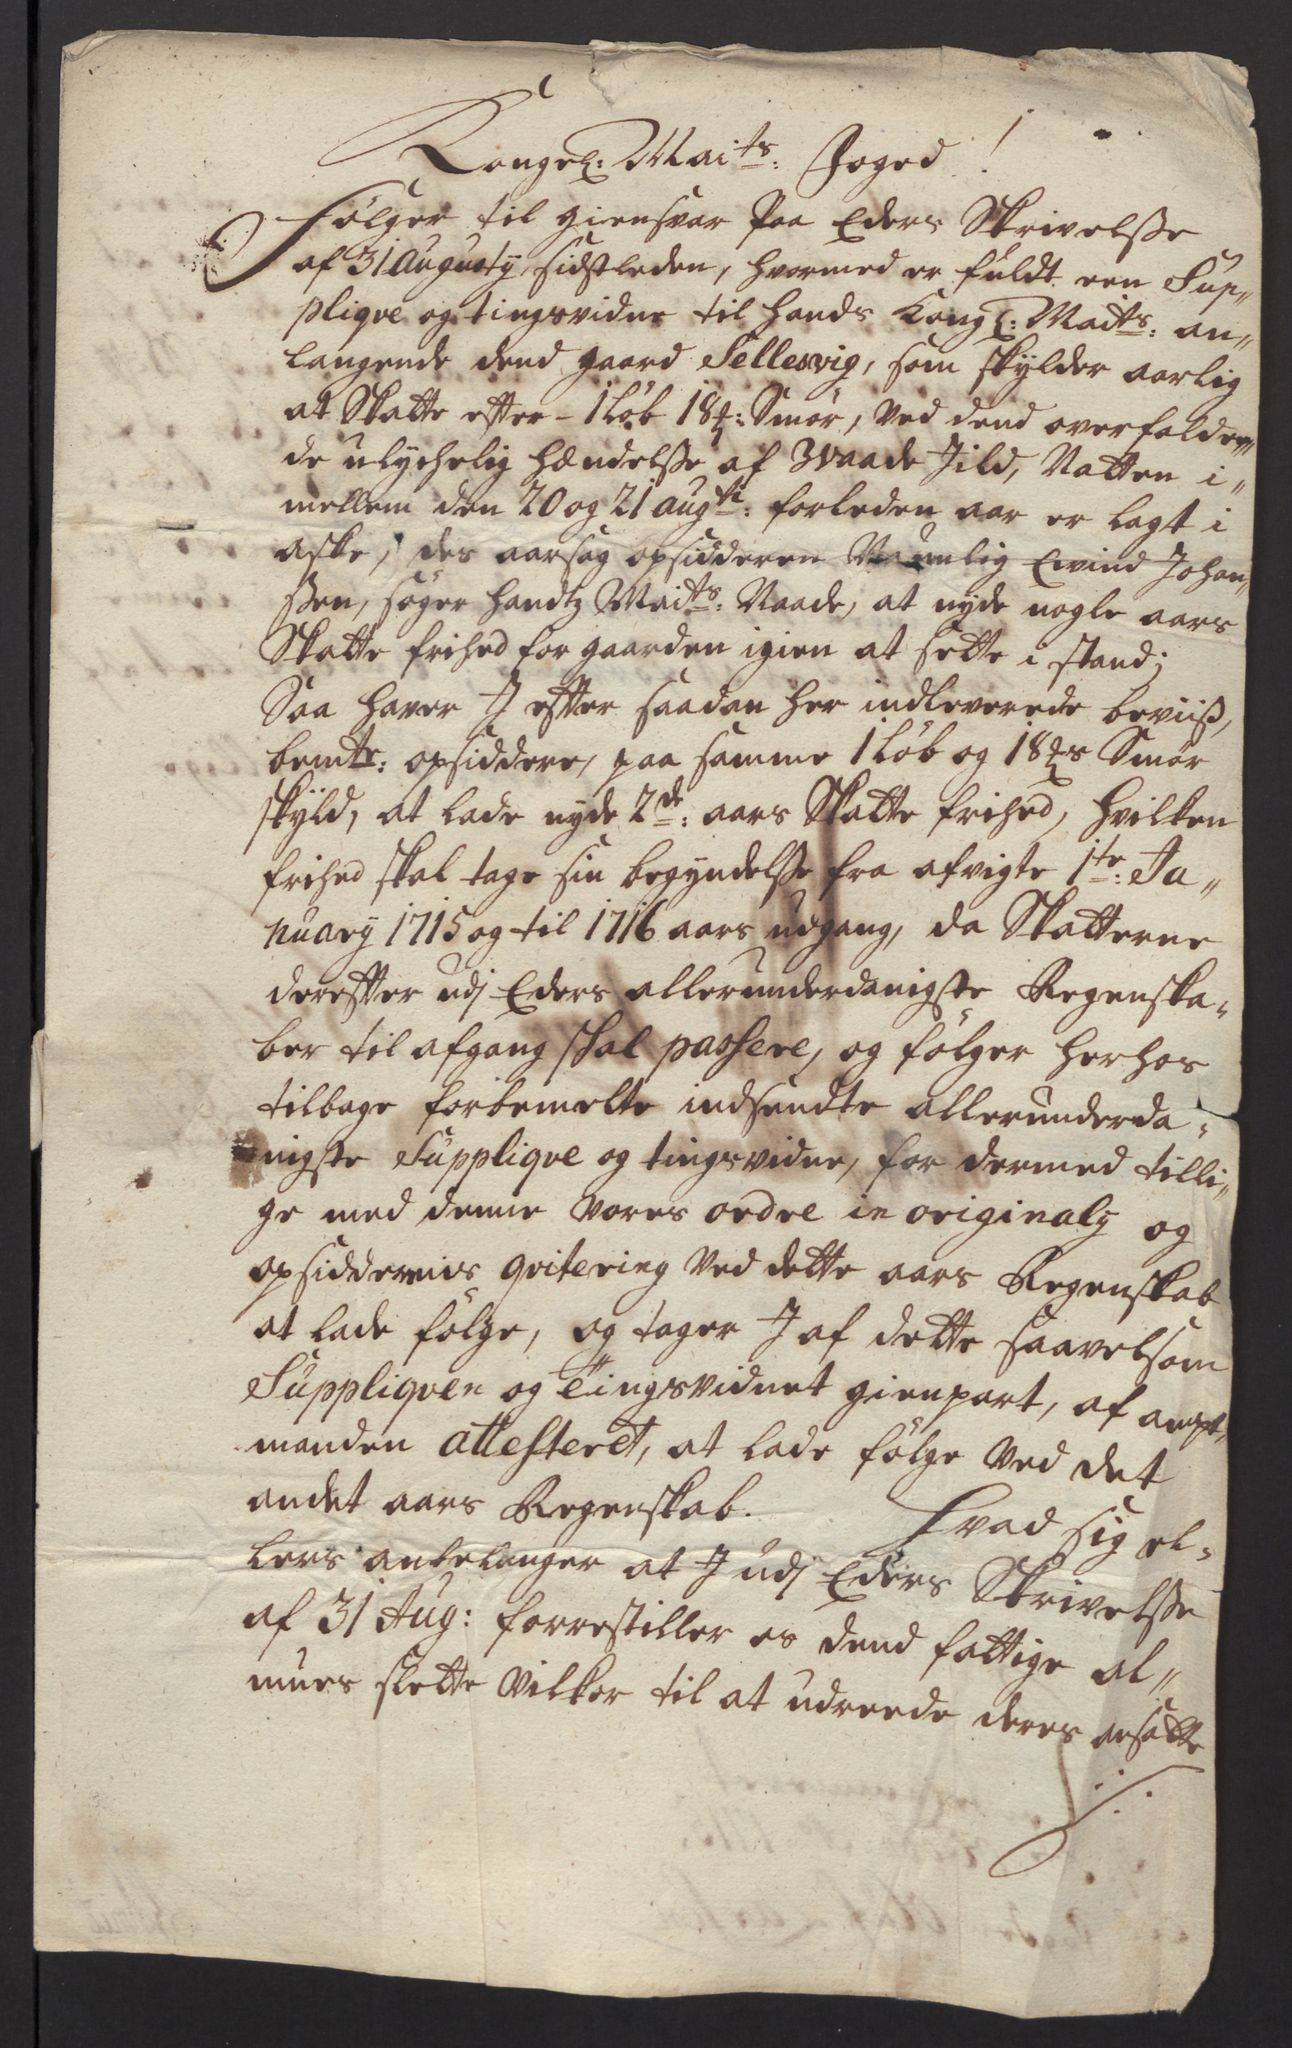 Kongel: Maits: Foged!
Følger til giensvar paa Eders Skrivelsse
af 31 Augusty sidstleden, hvormed er fuldt een Sup„
pliqve og tingsvidne til Hands Kongl: Maits: an„
langende dend gaard Sellesvig, som skylder aarlig
at Skatte effter - 1 Løb 18 ℔: Smør, Ved dend overfalden„
de ulychelig Hændelsse af Waade Jild, Natten i„
mellem den 20 og 21 augti: forleden aar er lagt i
aske, des aarsag opsidderen Naunlig Ewind Johan„
ssen, søger Handtz Maits: Naade, at nyde nogle aars
Skatte frihed for gaarden igien at sette i stand;
Saa haver J effter saadan her indleverede beviiß,
bemte: opsiddere, paa samme 1 Løb og 18 ℔s Smør
skyld, at lade nyde 2de: aars Skatte frihed, hvilken
frihed skal tage sin begyndelsse fra afvigte 1te: Ja„
nuary 1715 og til 1716 aars udgang, da Skatterne
dereffter udj Eders allerunderdanigste Regenska„
ber til afgang skal passere, og følger herhos
tilbage forbemelte indsendte allerunderda„
nigste Suppliqve og tingsvidne, for dermed tilli„
ge med denne vores ordre in originaly og
opsidderens qvitering Ved dette aars Regenskab
at lade følge, og tager J af dette saavelsom
Suppliqven og Tingsvidnet gienpart, af ampt„
manden attesteret, at lade følge Ved det
andet aars Regenskab. Hvad sig el„
lers anbelanger at J udj Eders Skrivelsse
af 31 Aug: forrestiller os dend fattige al„
mues slette Vilkor til at udreede deres ansatte